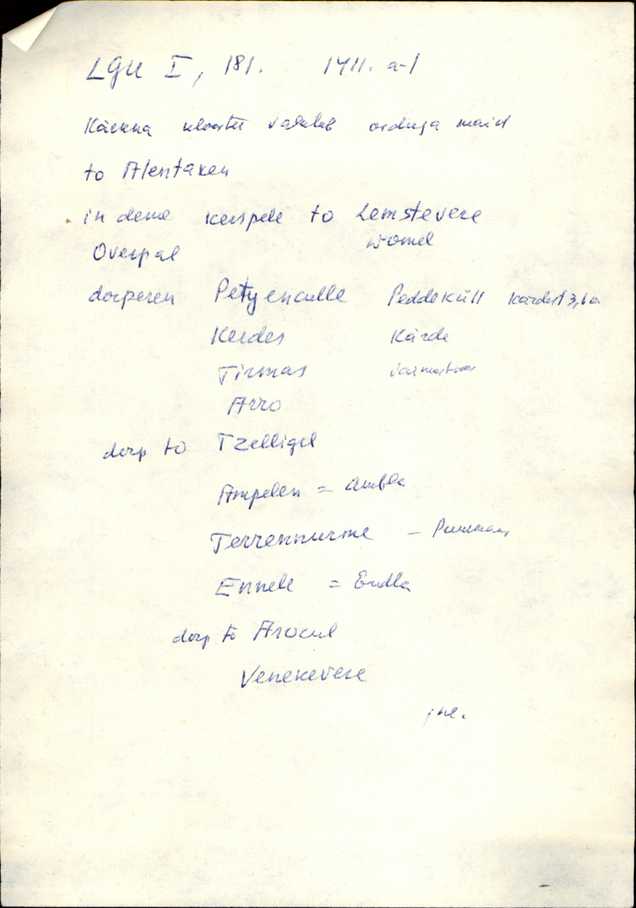 LGU I, 181. 1411. a-l
Kärkna klooster vahetab orduga maid
to Alentaken
in deme kerspele to Lemstevere
Overpal
dorperen Petyenculle Peddeküll
Kerdes Kärde
Tirmas
Arro
dorp to Tzelligel
Ampelen = Ambla
Terrennurme –
Ennele = Endla
dorp to Arocul
Venekevere
jne.